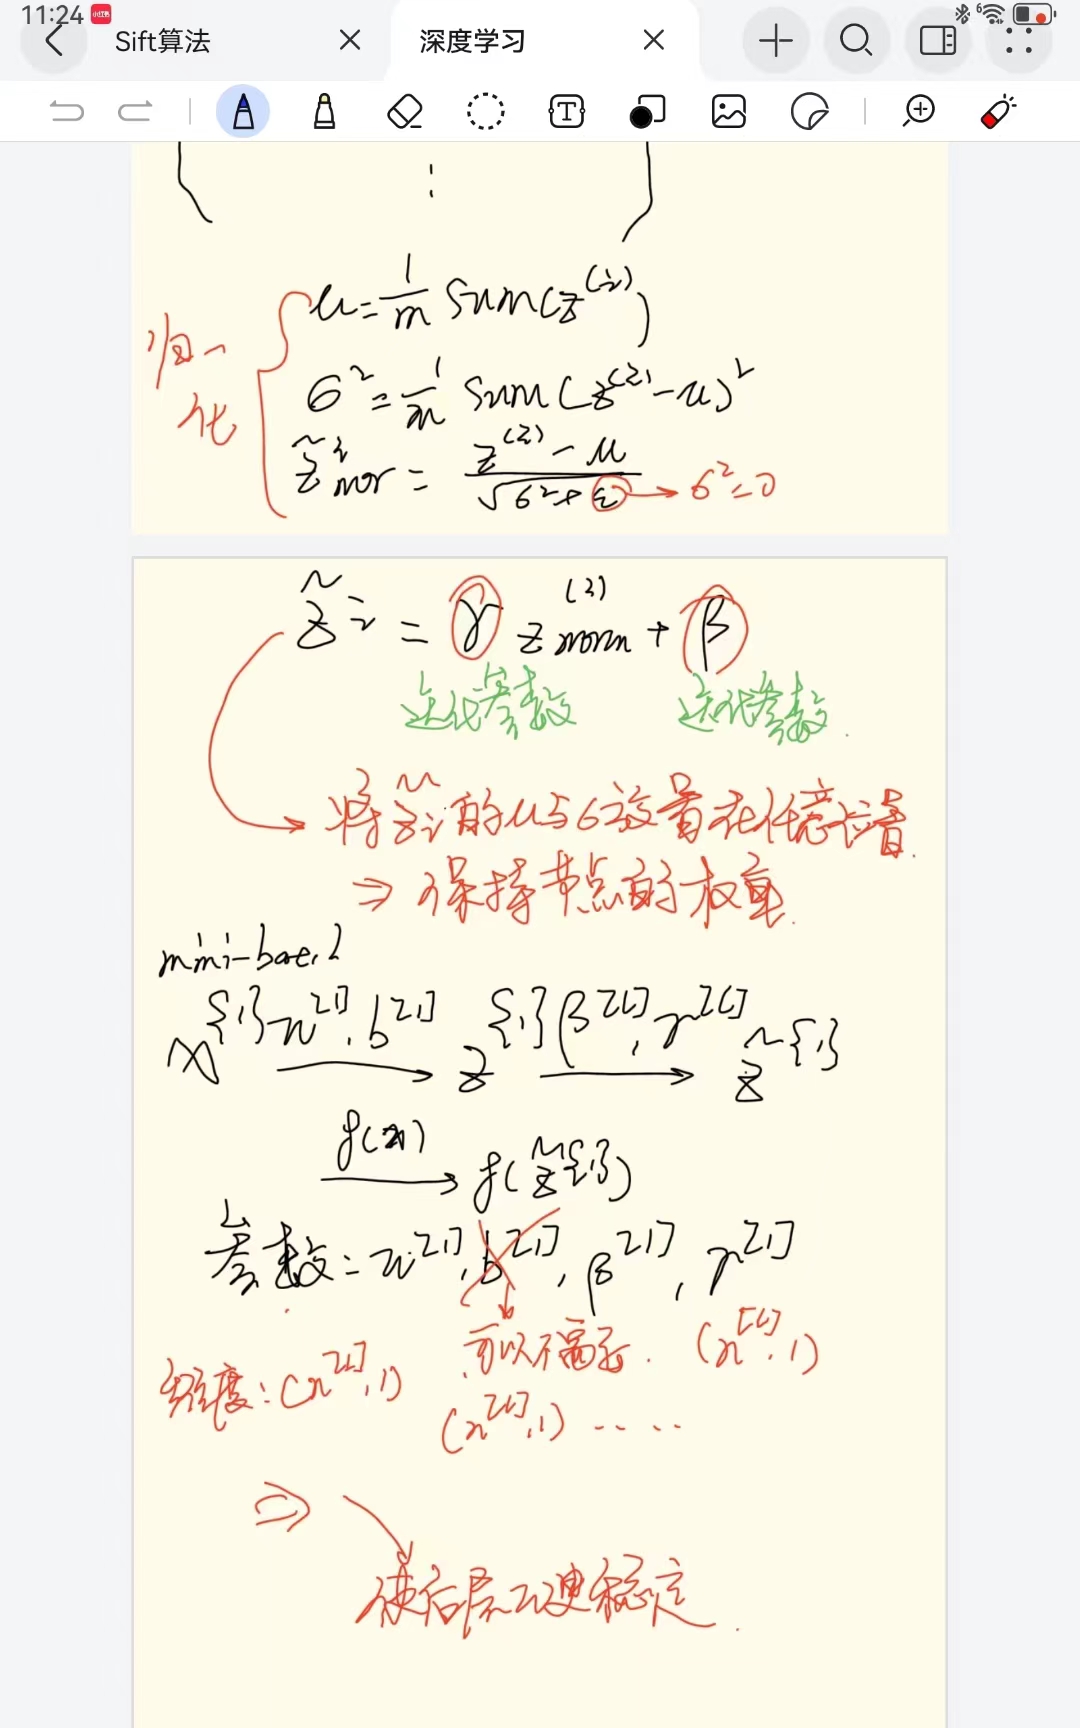 11:24
Sift算法
深度学习
归一化
μ=1/m sum(z^(i))
σ²=1/m sum(z^(i)-μ)²
z̃^i nor = (z^(i)-μ)/√(σ²+ε) → σ²=0
z̃^i = γ z^(i) norm + β
迭代参数 迭代参数.
将z̃i的μ与σ放置在任意位置.
⇒保持节点的权重.
X^{1} w^[1], b^[1] → z^{1} β^[1], γ^[1] → z̃^{1}
f(z̃^{1})
参数: w^[1], b^[1], β^[1], γ^[1]
可以不需要. (n^[l], 1)
维度: (n^[l], 1)
(n^[l], 1) .....
⇒
使后层w更稳定.